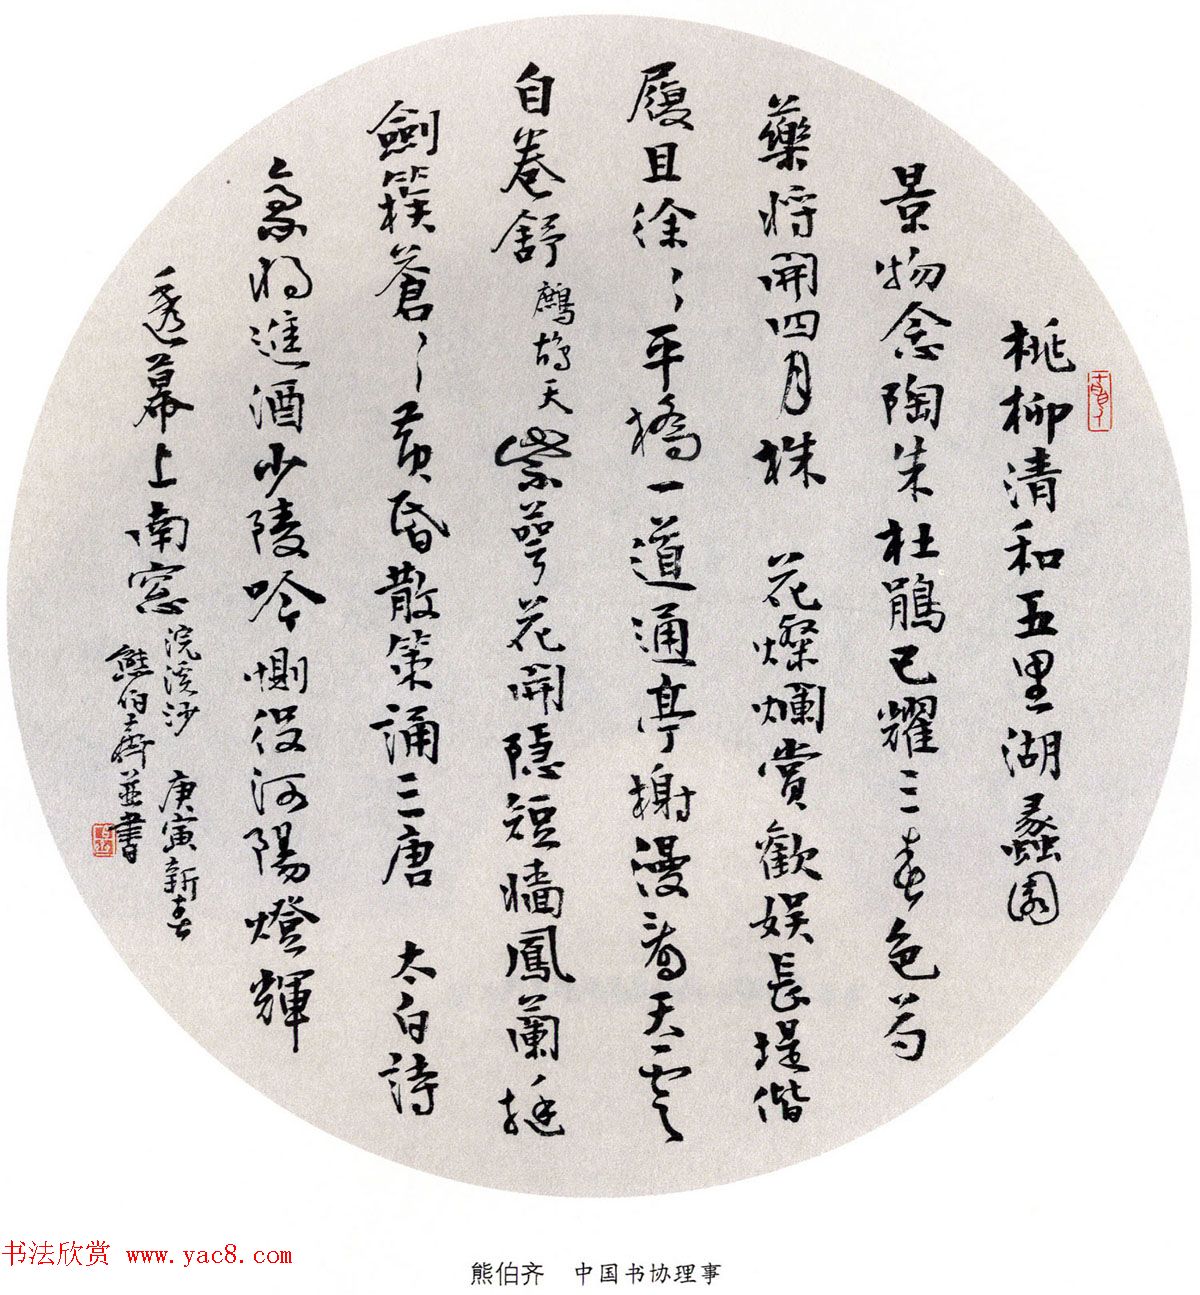 桃柳清和五里湖蠡園
景物念陶朱杜鵑已耀三春色芍
藥將開四月株 花燦爛賞歡娱長堤偕
履且徐〻平橋一道通亭榭漫看天雲
自卷舒 鷓鴣天 紫萼花開隱短墻鳳蘭挺
劍簇蒼〻黄昏散策誦三唐 太白詩
將進酒少陵吟惻役河陽燈輝
透幕上南窓 浣溪沙 庚寅新春
熊伯齊並書
书法欣赏 www.yac8.com
熊伯齐 中国书协理事